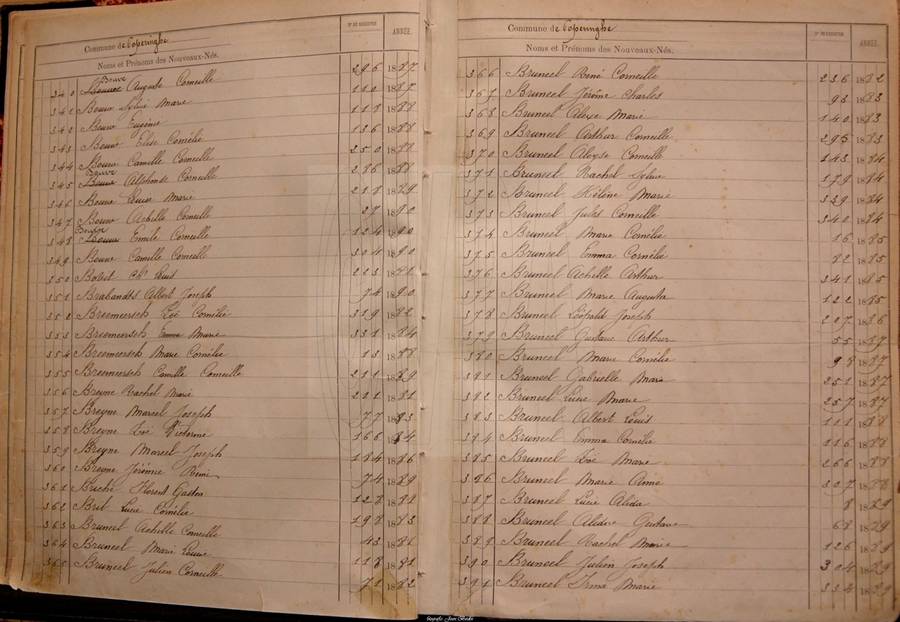 Commune de Poperinghe
Noms et Prénoms des Nouveaux-Nés.
Nº DU REGISTRE
ANNÉE.
340 Auguste Corneille 296 1887
341 Marie 110 1887
342 Eugénie 118 1888
343 Elise Cornélie 136 1888
344 Camille Corneille 250 1888
345 Alphonse Corneille 286 1888
346 Louise Marie 218 1889
347 Achille Corneille 27 1890
348 Emile Corneille 124 1890
349 Camille Corneille 304 1890
350 Louis
351 Brabandts Albert Joseph 74 1890
352 Bresmersch Zoé Cornélie 319 1882
353 Bresmersch Marie 331 1884
354 Bresmersch Marie Cornélie 13 1888
355 Bresmersch Camille Corneille 211 1889
356 Breyne Rachel Marie 1881
357 Breyne Marcel Joseph 77 1883
358 Breyne Zoé 166 1884
359 Breyne Marcel Joseph 184 1886
360 Breyne Jérémie Remi 74 1889
361 Florent Gaston 128 1888
362 Bril Lucie Cornélie 198 1883
363 Bruneel Achille Corneille 43 1881
364 Bruneel Marie Louise 118 1881
365 Bruneel Julien Corneille 71 1882
Commune de Poperinghe
Noms et Prénoms des Nouveaux-Nés.
Nº DU REGISTRE
ANNÉE.
366 Bruneel René Corneille 236 1882
367 Bruneel Jérôme Charles 93 1883
368 Bruneel Marie 140 1883
369 Bruneel Arthur Corneille 295 1883
370 Bruneel Aloyse Corneille 143 1884
371 Bruneel Rachel 179 1884
372 Bruneel Hélène Marie 339 1884
373 Bruneel Jules Corneille 340 1884
374 Bruneel Marie Cornélie 16 1885
375 Bruneel Emma Cornélie 82 1885
376 Bruneel Achille Arthur 341 1885
377 Bruneel Marie Augusta 122 1885
378 Bruneel Léopold Joseph 207 1886
379 Bruneel Gustave Arthur 55 1887
380 Bruneel Marie Cornélie 98 1887
381 Bruneel Gabrielle Marie 251 1887
382 Bruneel Lucie Marie 257 1887
383 Bruneel Albert Louis 111 1888
384 Bruneel Emma Cornélie 116 1888
385 Bruneel Zoé Marie 266 1888
386 Bruneel Marie Aimé 307 1888
387 Bruneel Lucie Alida 8 1889
388 Bruneel Gustave 68 1889
389 Bruneel Rachel Marie 126 1889
390 Bruneel Julien Joseph 304 1889
391 Bruneel Irma Marie 334 1889